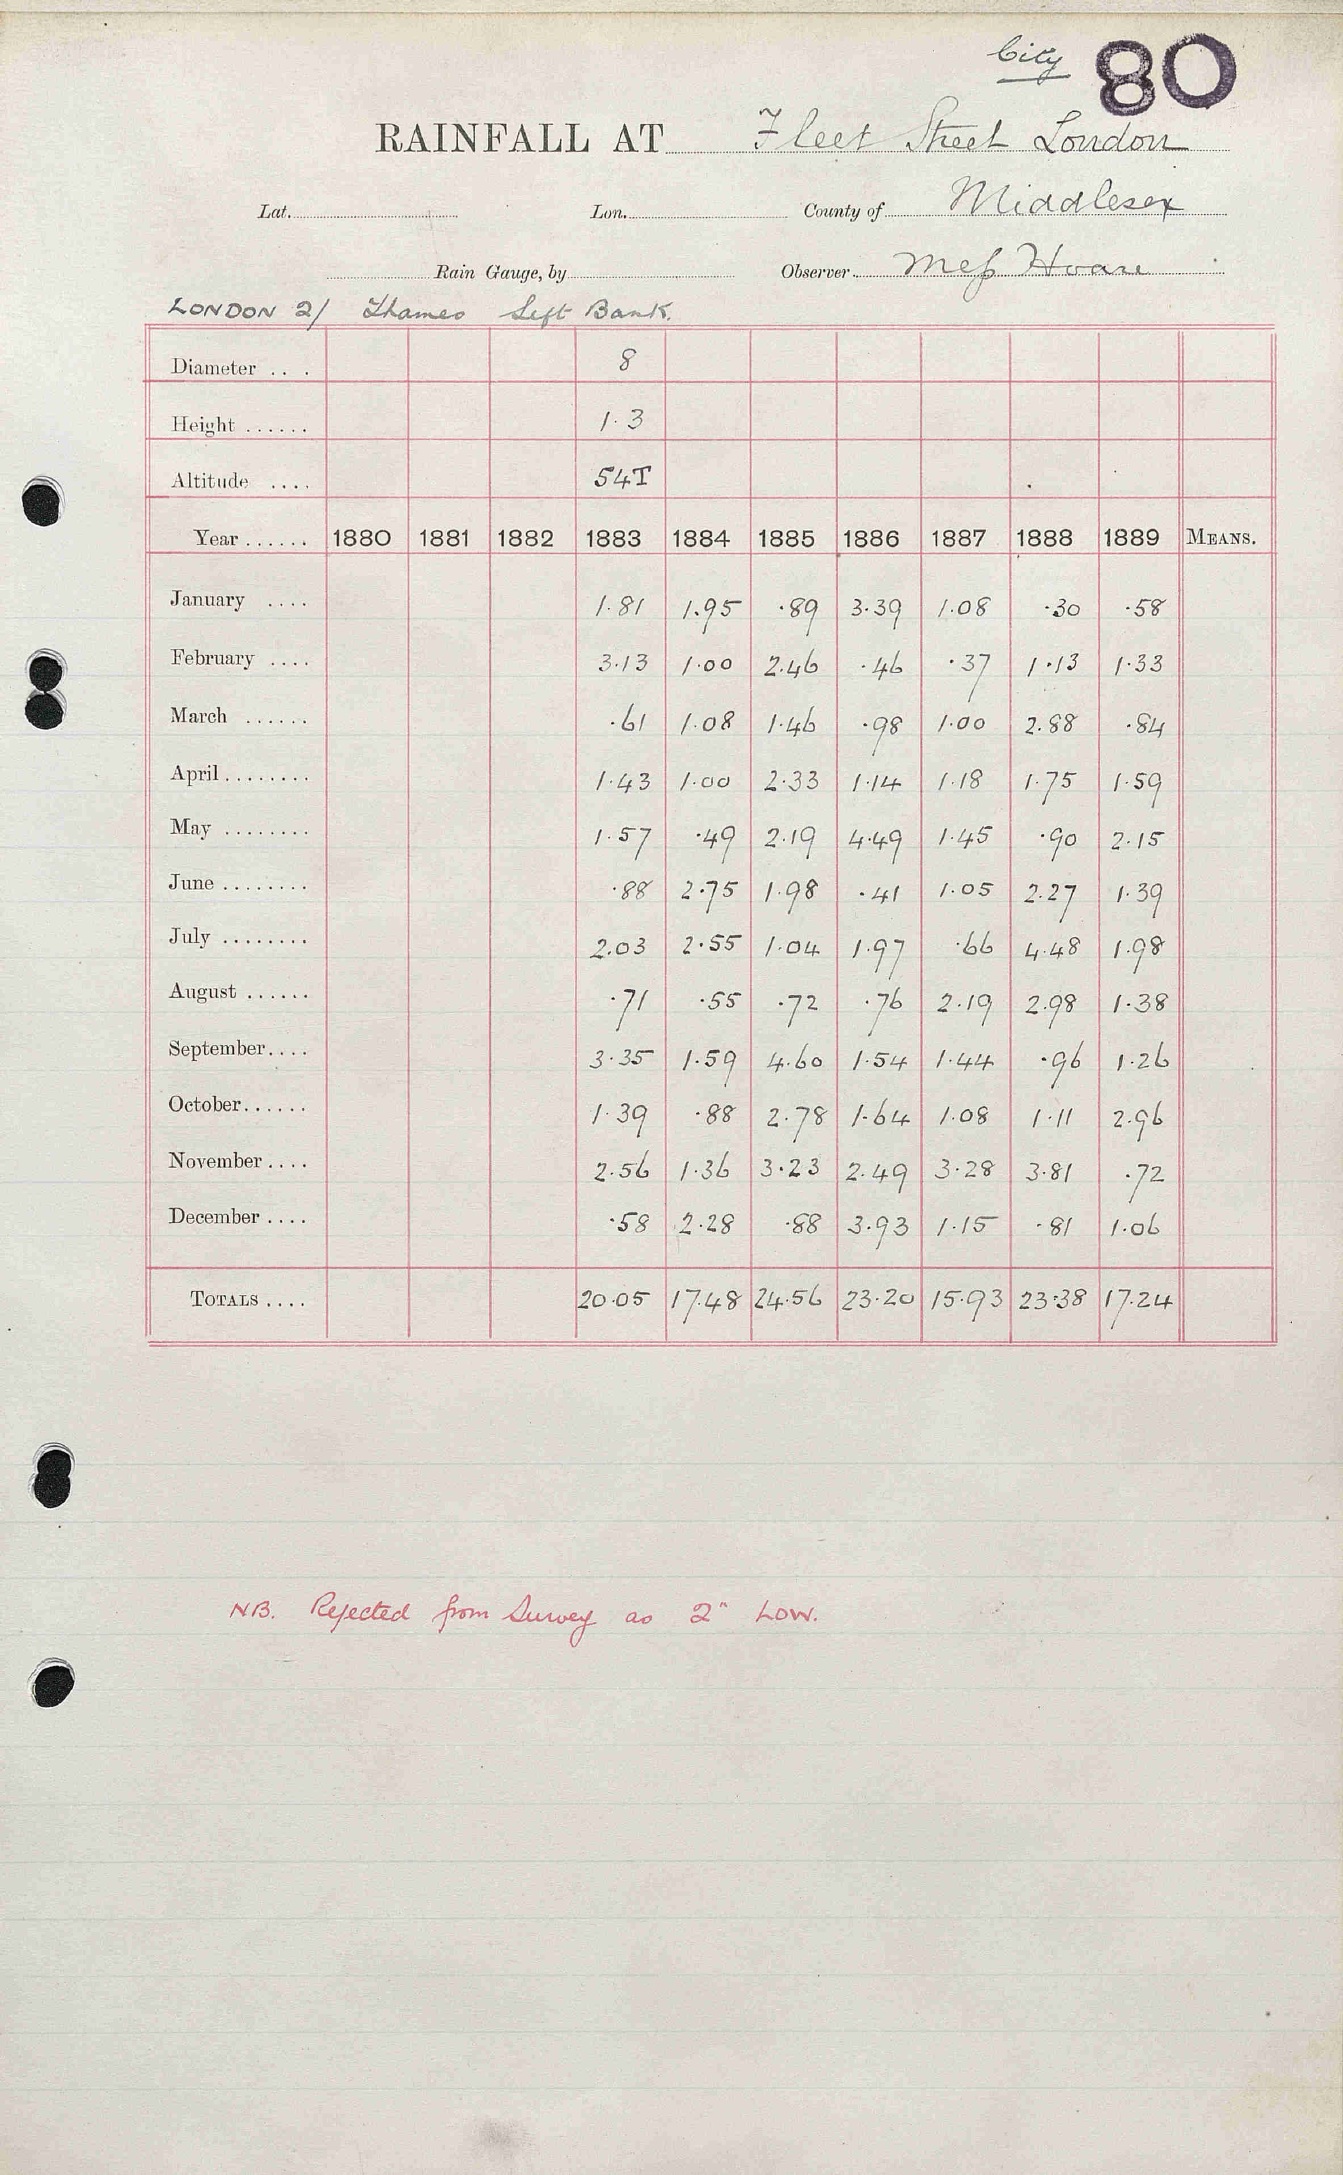 City 80
RAINFALL AT Fleet Street London
Lat. Lon. County of Middlesex
Rain Gauge, by Observer. Mess Hoare
LONDON 2/ Thames Left Bank.
Diameter ... 8
Height ...... 1.3
Altitude .... 54T
Year ...... 1880 1881 1882 1883 1884 1885 1886 1887 1888 1889 MEANS.
January .... 1.81 1.95 .89 3.39 1.08 .30 .58
February .... 3.13 1.00 2.46 .46 .37 1.13 1.33
March ...... .61 1.08 1.46 .98 1.00 2.88 .84
April ........ 1.43 1.00 2.33 1.14 1.18 1.75 1.59
May ........ 1.57 .49 2.19 4.49 1.45 .90 2.15
June ........ .88 2.75 1.98 .41 1.05 2.27 1.39
July ........ 2.03 2.55 1.04 1.97 .66 4.48 1.98
August ...... .71 .55 .72 .76 2.19 2.98 1.38
September.... 3.35 1.59 4.60 1.54 1.44 .96 1.26
October...... 1.39 .88 2.78 1.64 1.08 1.11 2.96
November .... 2.56 1.36 3.23 2.49 3.28 3.81 .72
December .... .58 2.28 .88 3.93 1.15 .81 1.06
TOTALS .... 20.05 17.48 24.56 23.20 15.93 23.38 17.24
NB. Rejected from Survey as 2" LOW.